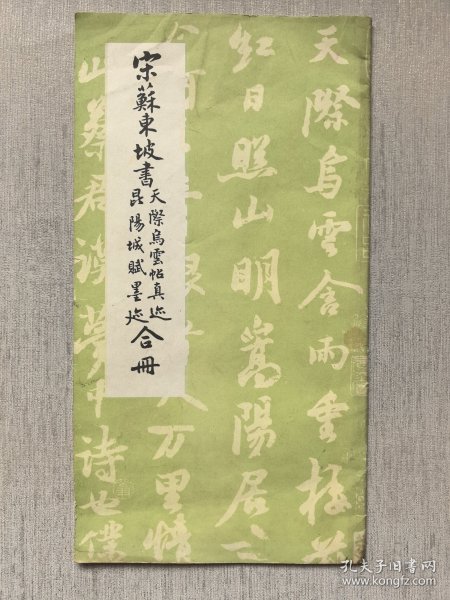 宋蘇東坡書
天際烏雲帖真迹
昆陽城賦墨迹
合冊
天際烏雲含雨重樓
紅日照山明嵩陽居士
今何在青眼看人万里情
山蔡君謨夢中詩也僕
孔夫子旧书网
www.kongfz.com